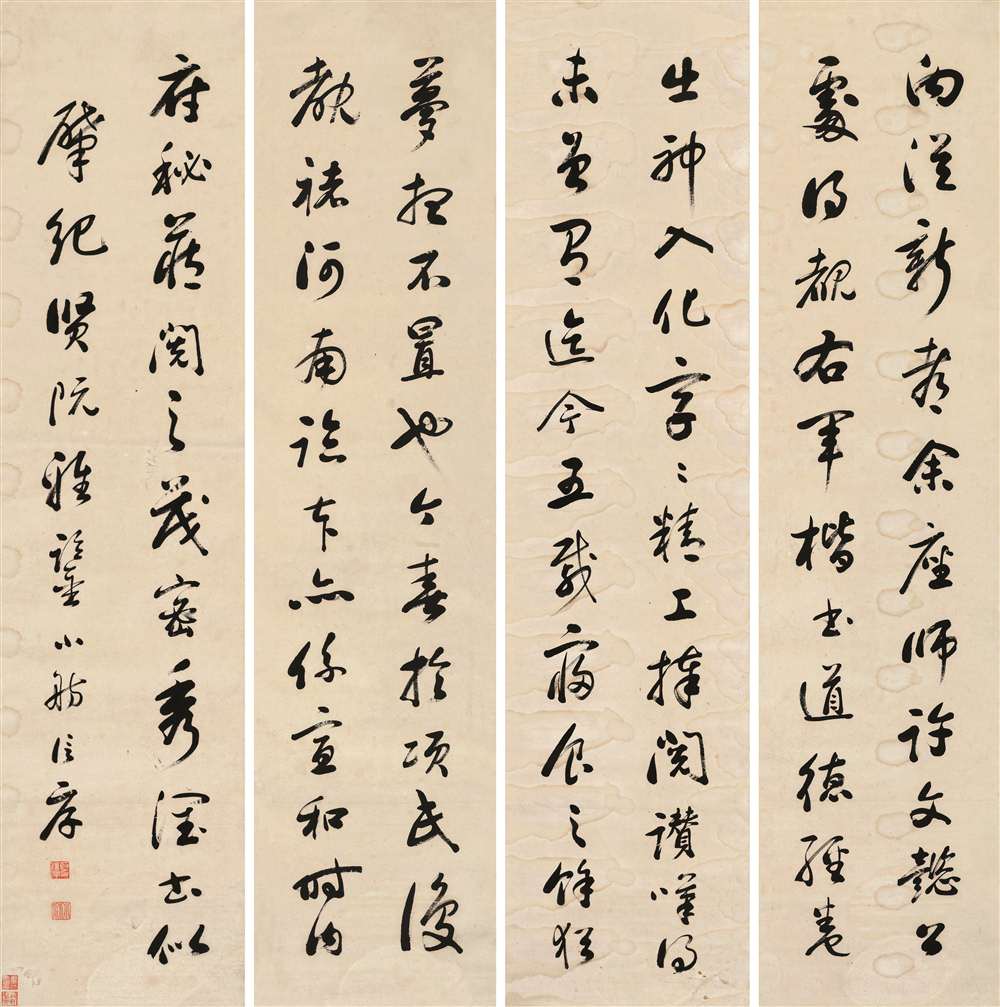 向從新都余座師許文懿公
處得觀右軍楷書道德經卷
出神入化字〻精工捧閱讚嘆得
未曾有迄今五載寤食之餘猶
夢想不置也今春於項氏復
觀褚河南臨本亦係宣和時內
府秘藏閱之茂密秀潤書似
肇紀賢阮雅鑒小舫信厚